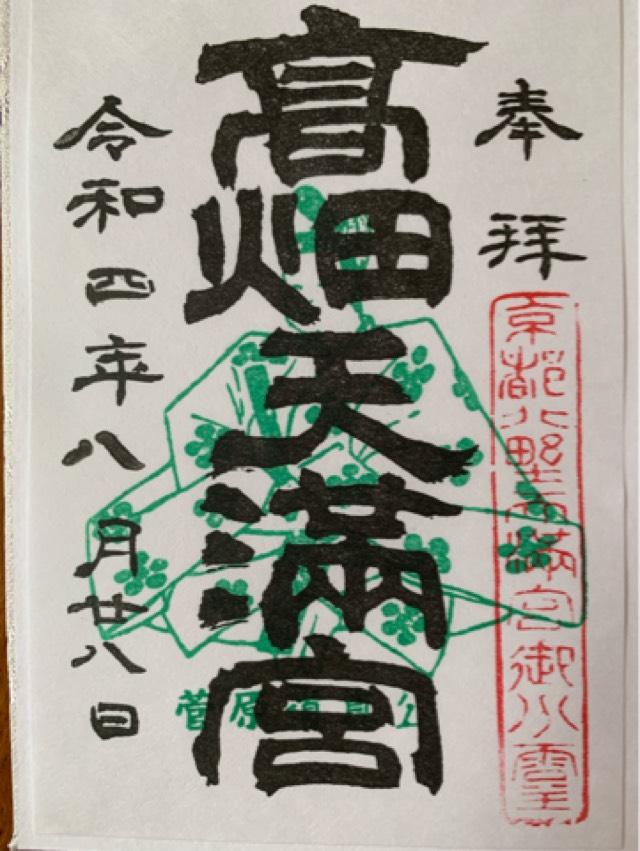 奉拝
京都北野天満宮御分霊
髙畑天満宮
菅原道真公
令和四年八月廿八日